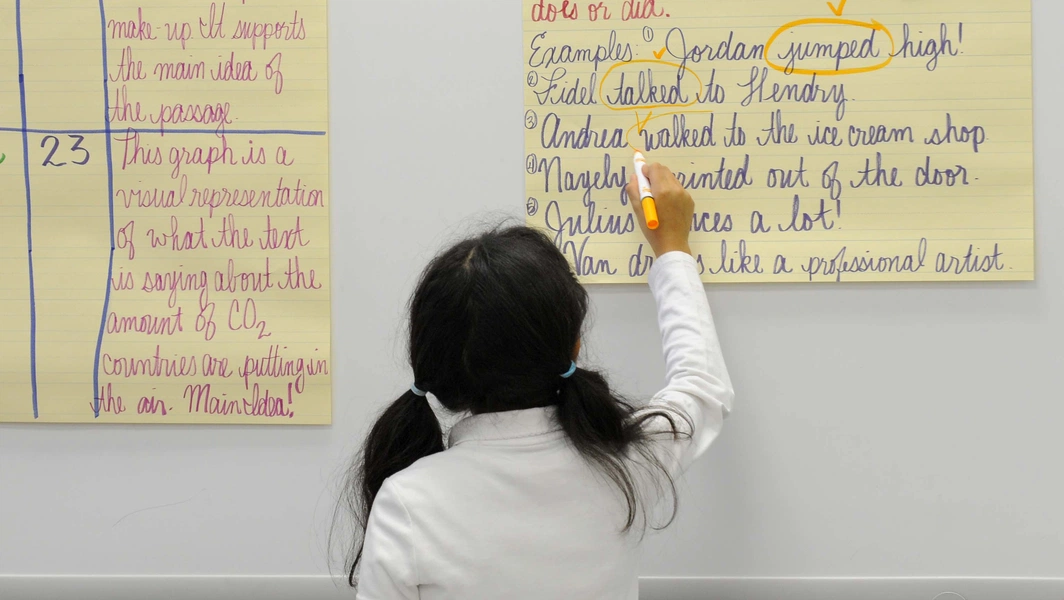 make-up. It supports
the main idea of
the passage.
23 This graph is a
visual representation
of what the text
is saying about the
amount of CO2
countries are putting in
the air. Main Idea!
does or did.
Examples: ① Jordan jumped high!
② Fidel talked to Hendry.
③ Andrea walked to the ice cream shop.
④ Nayely out of the door.
⑤ Julius a lot!
Van like a professional artist.